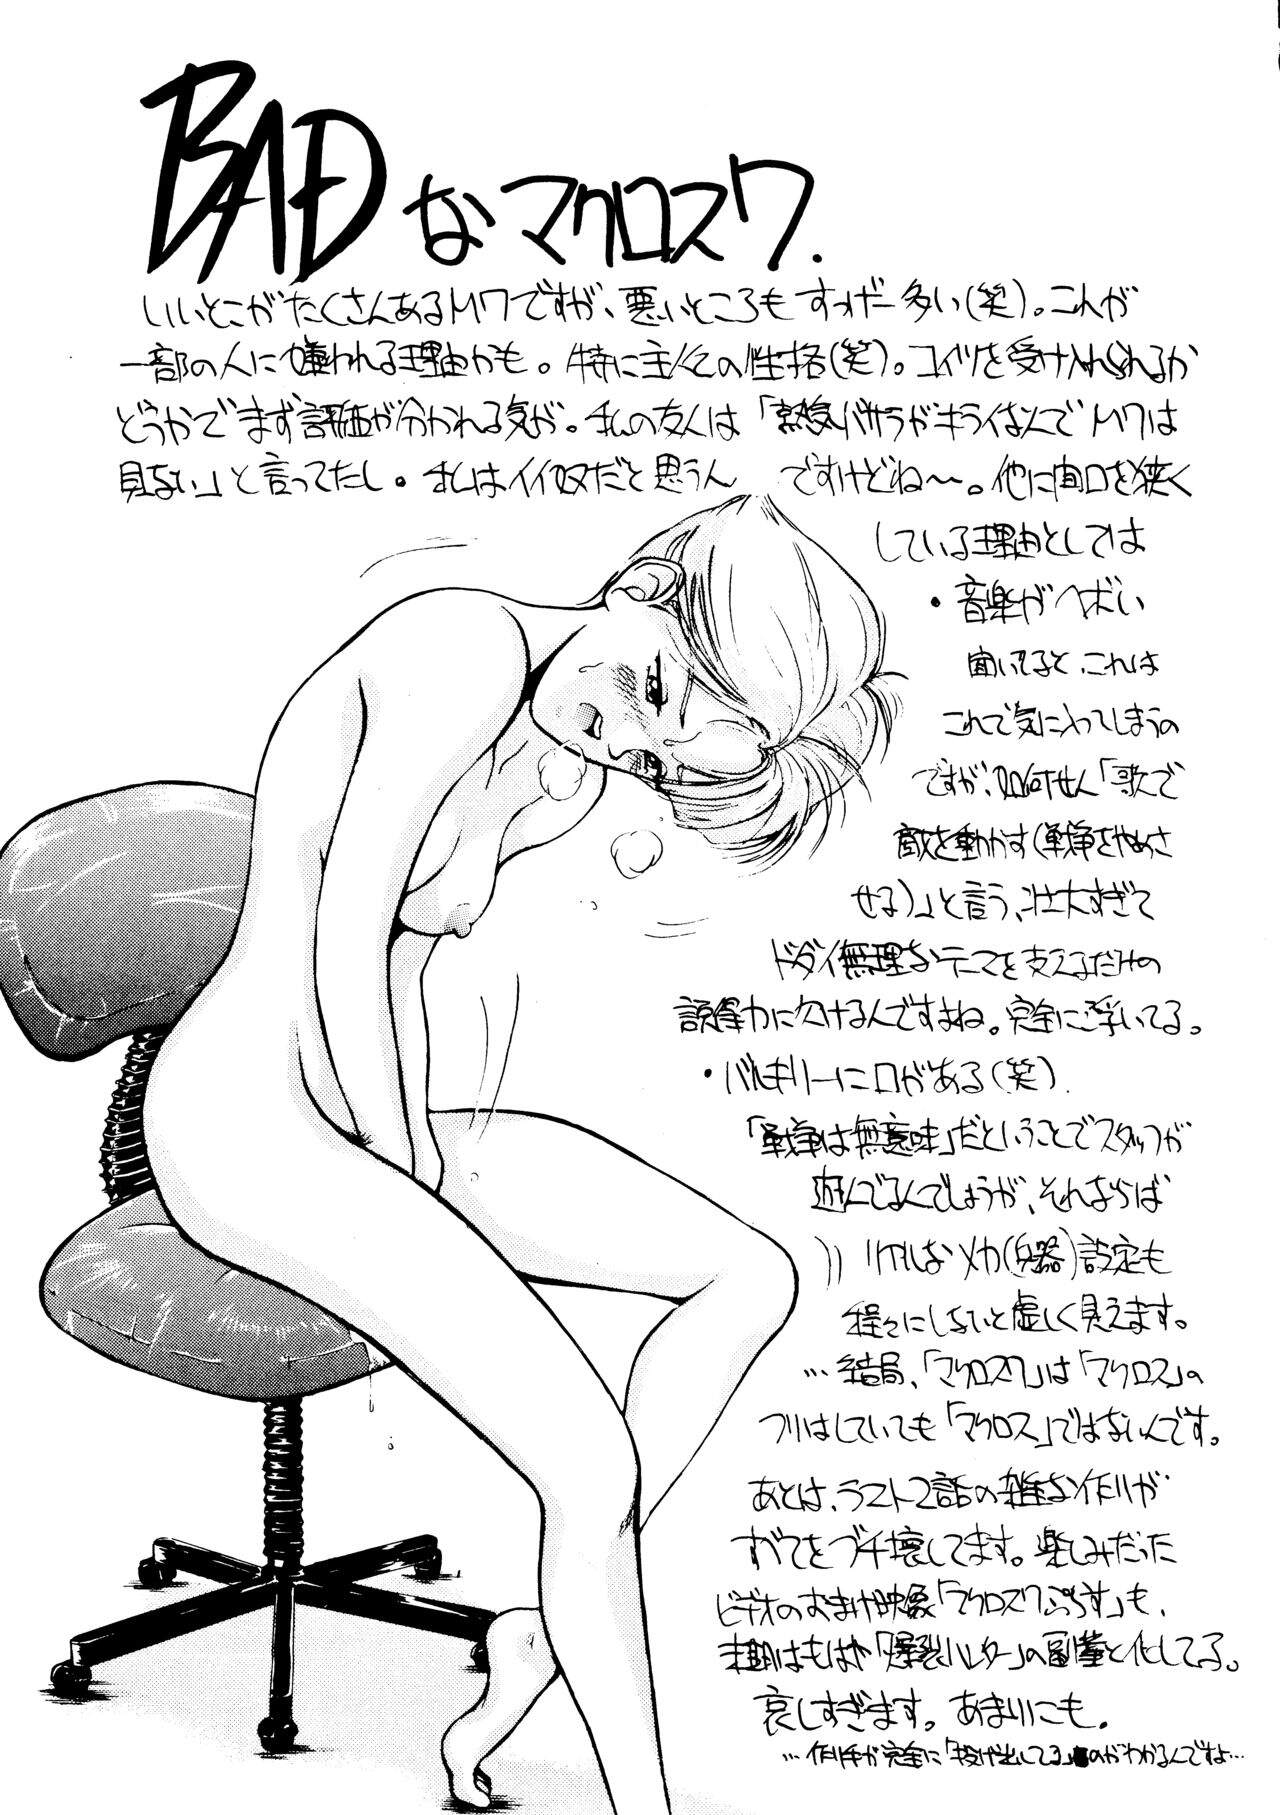 BADなマクロス7.
いいとこがたくさんあるM7ですが、悪いところもすっげー多い(笑)。これが
一部の人に嫌われる理由かも。特に主人公の性格(笑)。コイツを受け入れられるか
どうかでまず評価が分かれる気が。私の友人は「熱気バサラがキライなんでM7は
見ない」と言ってたし。私はイイ奴だと思うんですけどね〜。他に間口を狭く
している理由としては
・音楽がヘボい
聞いてると、これは
これで気に入ってしまうの
ですが、如何せん「歌で
敵を動かす(戦争をやめさ
せる)」と言う、壮大すぎて
ドダイ無理なテーマを支えるだけの
説得力に欠けるんですよね。完全に浮いてる。
・バルキリーに口がある(笑)
「戦争は無意味」だということでスタッフが
遊んでるんでしょうが、それならば
リアルなメカ(兵器)設定も
程々にしないと虚しく見えます。
…結局、「マクロス7」は「マクロス」の
フリはしていても「マクロス」ではないんです。
あとは、ラスト2話の雑な作りが
すべてをブチ壊してます。楽しみだった
ビデオのおまけ映像「マクロス7ぷらす」も、
末期はもはや「爆裂ハンター」の副業と化してる。
哀しすぎます。あまりにも。
…作り手が完全に「投げ出してる」のがわかるんですよ…